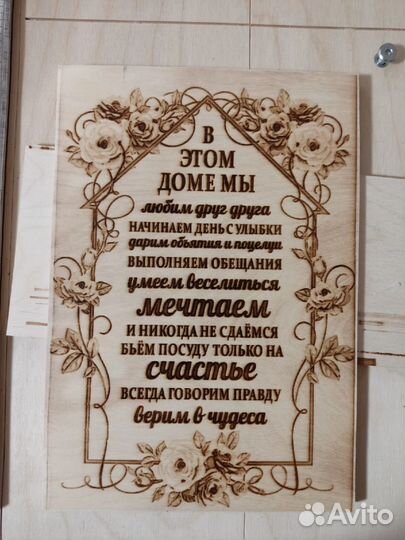 В
ЭТОМ
ДОМЕ МЫ
любим друг друга
НАЧИНАЕМ ДЕНЬ С УЛЫБКИ
дарим объятия и поцелуи
ВЫПОЛНЯЕМ ОБЕЩАНИЯ
умеем веселиться
мечтаем
И НИКОГДА НЕ СДАЁМСЯ
БЬЁМ ПОСУДУ ТОЛЬКО НА
счастье
ВСЕГДА ГОВОРИМ ПРАВДУ
верим в чудеса
Avito